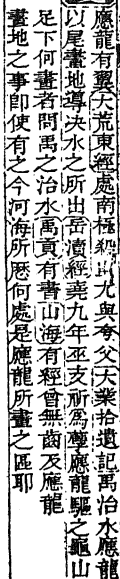 應龍有翼大荒東經處南極殺蚩尤與夸父大業拾遺記禹治水應龍
以尾畫地導決水之所出岳瀆經堯九年巫支祈為孽應龍驅之龜山
足下何畫者問禹之治水禹貢有書山海有經曾無齒及應龍
畫地之事即使有之今河海所歷何處是應龍所畫之區耶